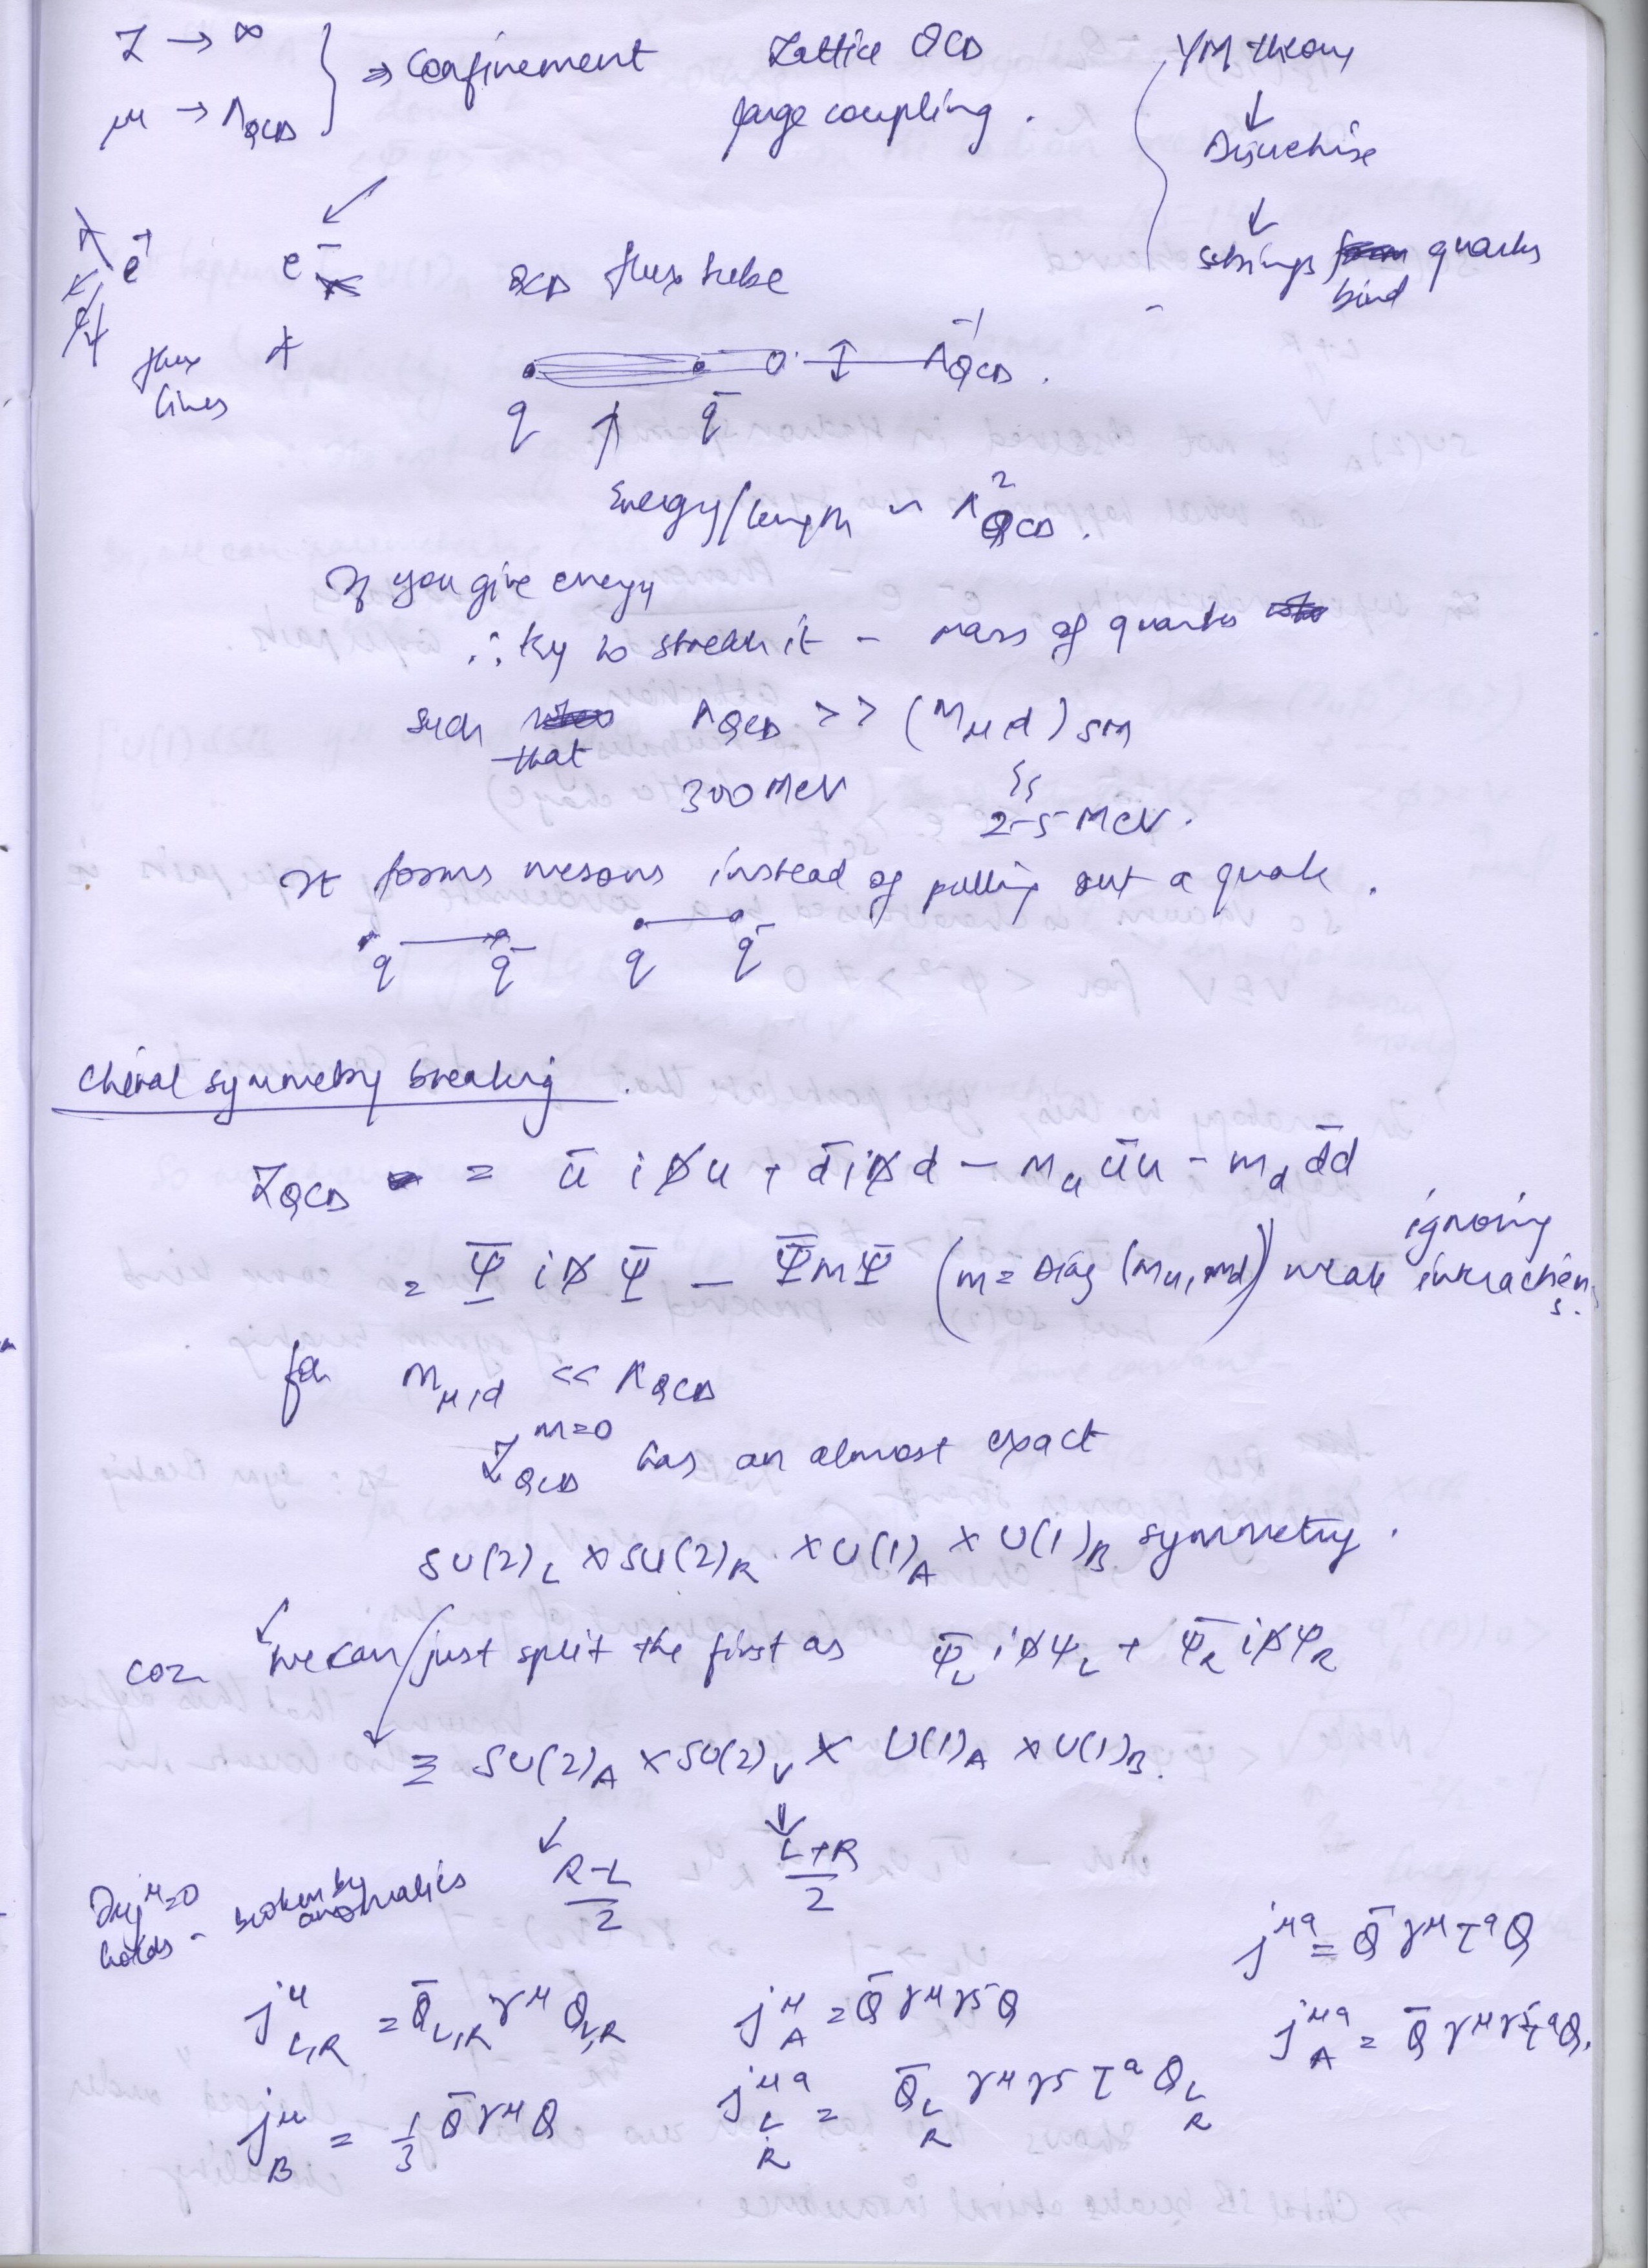 Z → ∞
μ → Λ_QCD } ⇒ Confinement
Lattice QCD
large coupling.
YM theory
↓
Discretise
↓
strings quarks
bind
e⁺ e⁻
flux
lines
QCD flux tube
q q̄ ↕ Λ_QCD⁻¹.
Energy/length ~ Λ²_QCD.
If you give energy
∴ try to stretch it – mass of quarks
such that Λ_QCD >> (m_u,d)_SM
300 MeV 2-5 MeV.
It forms mesons instead of pulling out a quark.
q q̄ q q̄
Chiral symmetry breaking.
ℒ_QCD = ū i D̸ u + d̄ i D̸ d − m_u ūu − m_d d̄d
= Ψ̄ i D̸ Ψ̄ − Ψ̄ m Ψ (m = Diag (m_u, m_d)) ignoring weak interactions.
for m_u,d << Λ_QCD
ℒ_QCD^{m=0} has an almost exact
SU(2)_L × SU(2)_R × U(1)_A × U(1)_B symmetry.
coz we can just split the first as Ψ̄_L i D̸ Ψ_L + Ψ̄_R i D̸ Ψ_R
≡ SU(2)_A × SU(2)_V × U(1)_A × U(1)_B.
R-L/2 L+R/2
∂_μ j^μ = 0
holds - broken by
anomalies
j^{μa} = Q̄ γ^μ τ^a Q
j^μ_{L,R} = Q̄_{L,R} γ^μ Q_{L,R}
j^μ_A = Q̄ γ^μ γ5 Q
j^{μa}_A = Q̄ γ^μ γ5 τ^a Q.
j^μ_B = 1/3 Q̄ γ^μ Q
j^{μa}_{L R} = Q̄_{L R} γ^μ γ5 τ^a Q_{L R}